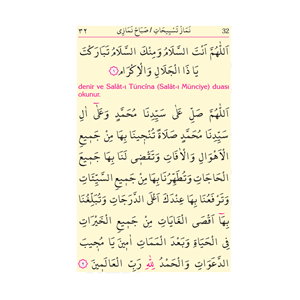 ٣٢ نَمَازْ تَسْبِيحَاتِى / صَبَاحْ نَمَازِى 32
اَللّٰهُمَّ اَنْتَ السَّلَامُ وَمِنْكَ السَّلَامُ تَبَارَكْتَ
يَا ذَا الْجَلَالِ وَالْاِكْرَامِ
denir ve Salât-ı Tüncîna (Salât-ı Münciye) duası
okunur.
اَللّٰهُمَّ صَلِّ عَلٰى سَيِّدِنَا مُحَمَّدٍ وَعَلٰٓى اٰلِ
سَيِّدِنَا مُحَمَّدٍ صَلَاةً تُنْجِينَا بِهَا مِنْ جَمِيعِ
الْاَهْوَالِ وَالْاٰفَاتِ وَتَقْضِى لَنَا بِهَا جَمِيعَ
الْحَاجَاتِ وَتُطَهِّرُنَا بِهَا مِنْ جَمِيعِ السَّيِّئَاتِ
وَتَرْفَعُنَا بِهَا عِنْدَكَ اَعْلَى الدَّرَجَاتِ وَتُبَلِّغُنَا
بِهَٓا اَقْصَى الْغَايَاتِ مِنْ جَمِيعِ الْخَيْرَاتِ
فِى الْحَيَاةِ وَبَعْدَ الْمَمَاتِ اٰمِينَ يَا مُجِيبَ
الدَّعَوَاتِ وَالْحَمْدُ لِلّٰهِ رَبِّ الْعَالَمِينَ